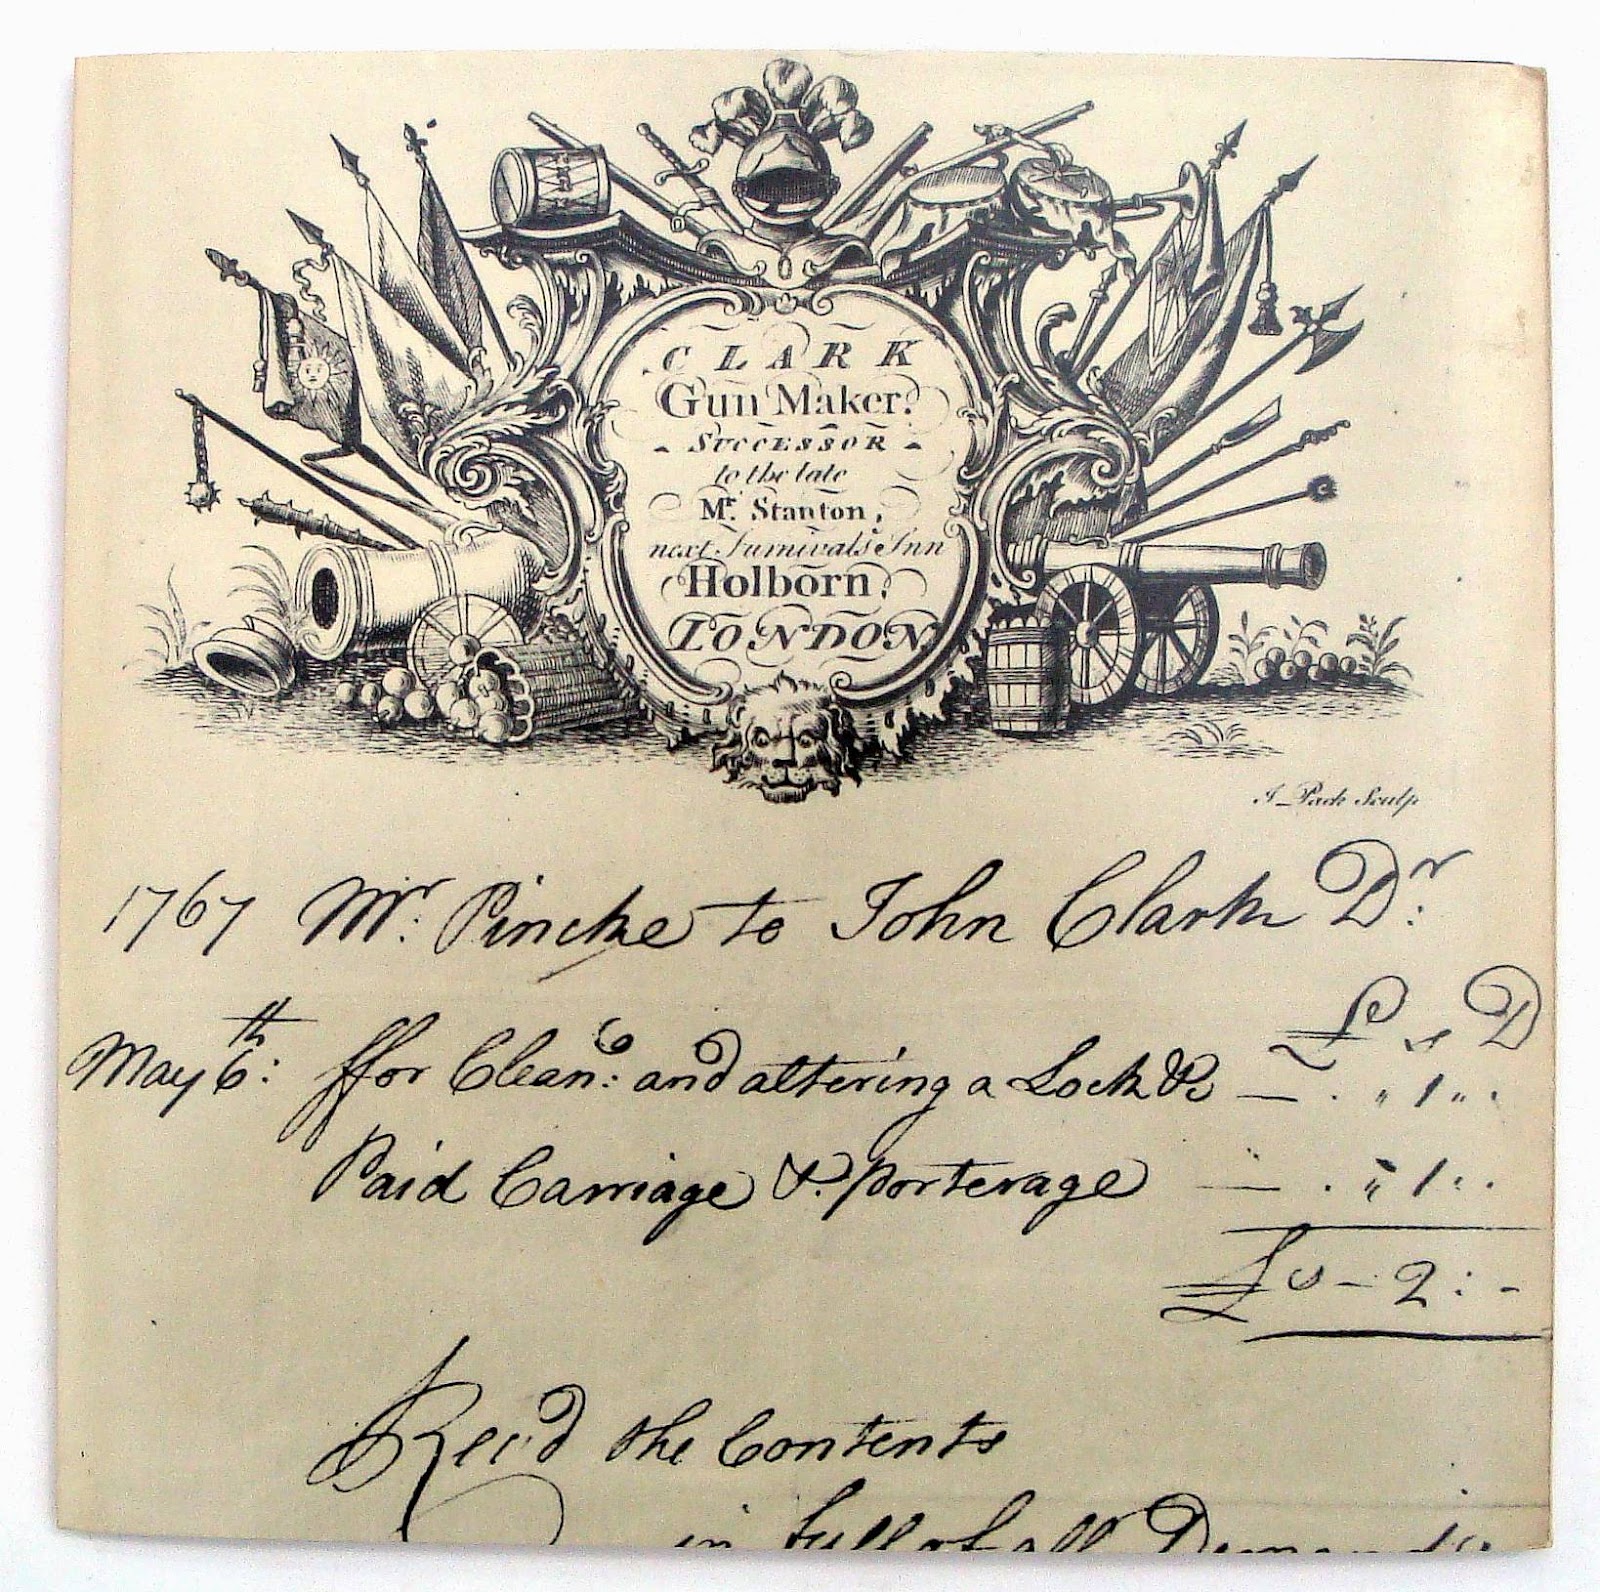 CLARK
Gun Maker.
SUCCESSOR
to the late
Mr. Stanton,
next Furnivals Inn
Holborn,
LONDON
I. Pack Sculp
1767 Mr. Pincke to John Clark Dr.
£ s D
May 6th: ffor Clean.g and altering a Lock &c — . " 1 " .
Paid Carriage & porterage — . " 1 . .
£ s - 2 : -
Rec'd the Contents
in full of all Demands